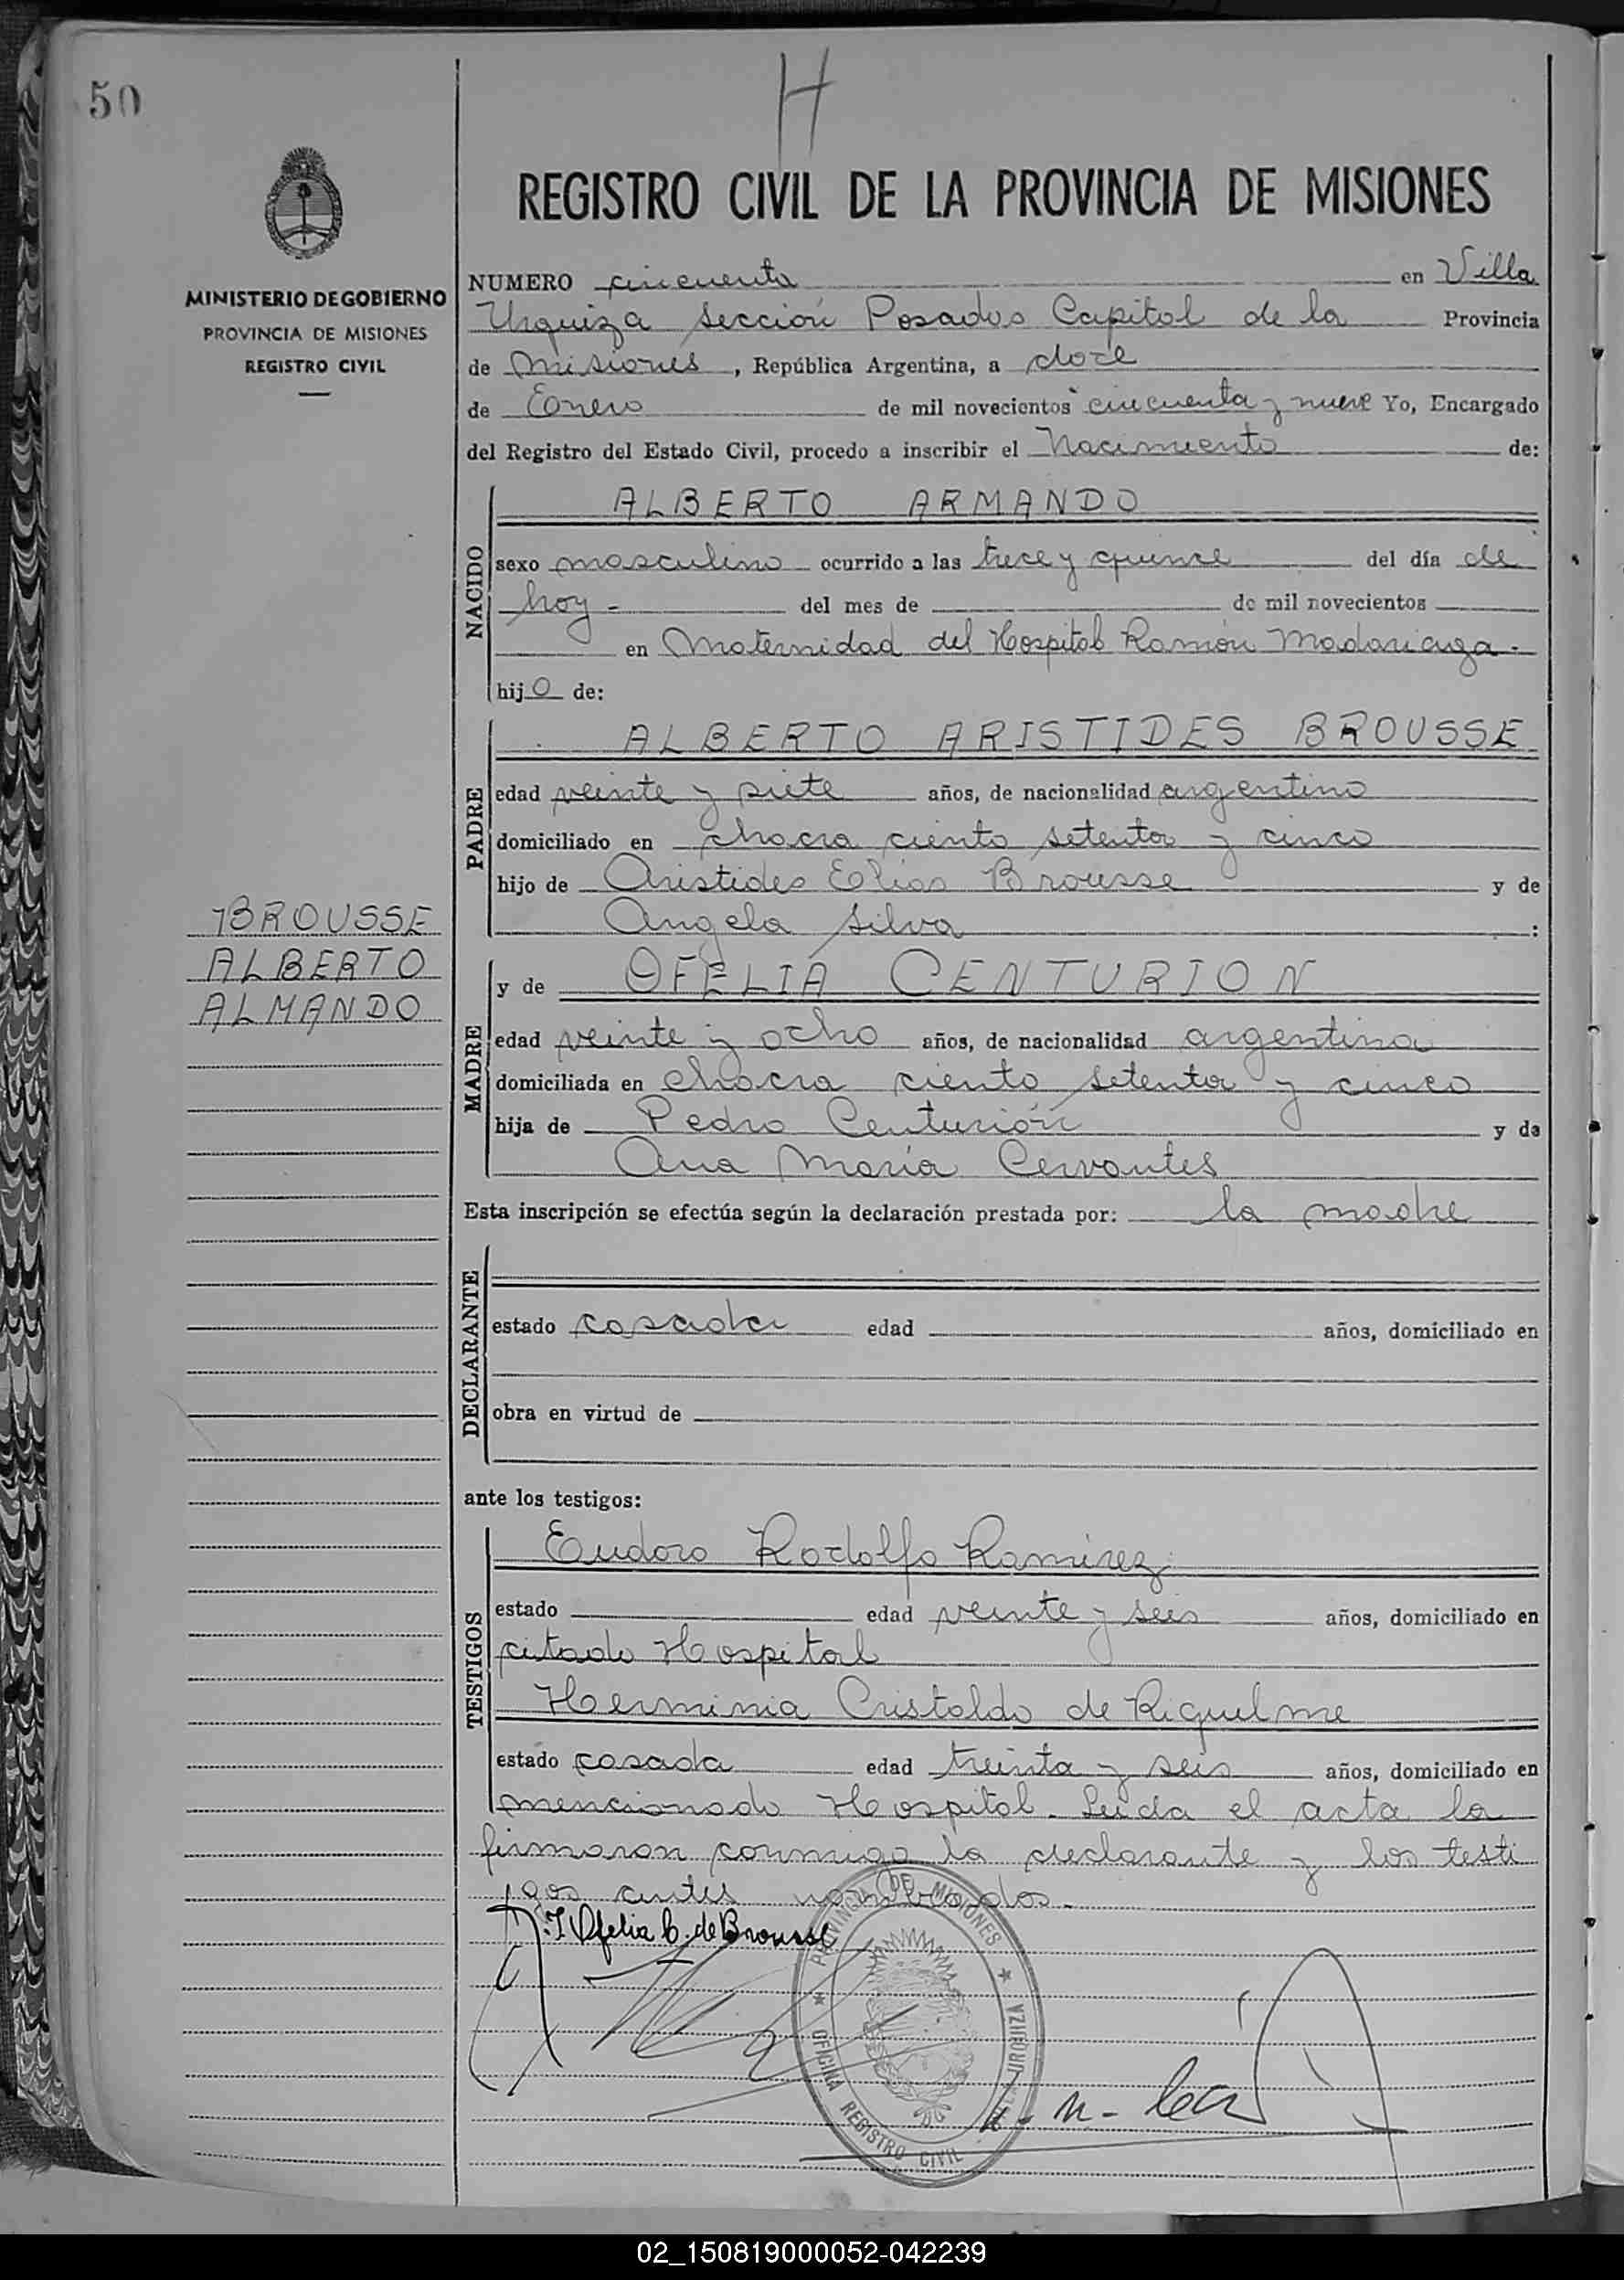 50
H
REGISTRO CIVIL DE LA PROVINCIA DE MISIONES
MINISTERIO DE GOBIERNO
PROVINCIA DE MISIONES
REGISTRO CIVIL
NUMERO cincuenta en Villa
Urquiza Sección Posadas Capital de la Provincia
de Misiones, República Argentina, a doce
de Enero de mil novecientos cincuenta y nueve Yo, Encargado
del Registro del Estado Civil, procedo a inscribir el Nacimiento de:
NACIDO
ALBERTO ARMANDO
sexo masculino ocurrido a las trece y quince del día de
hoy - del mes de de mil novecientos
en Maternidad del Hospital Ramón Madariaga.
hijo de:
PADRE
ALBERTO ARISTIDES BROUSSE
edad veinte y siete años, de nacionalidad argentino
domiciliado en chacra ciento setenta y cinco
hijo de Aristides Elias Brousse y de
Angela Silva :
BROUSSE
ALBERTO
ALMANDO
MADRE
y de OFELIA CENTURION
edad veinte y ocho años, de nacionalidad argentina
domiciliada en chacra ciento setenta y cinco
hija de Pedro Centurión y de
Ana María Cervantes
Esta inscripción se efectúa según la declaración prestada por: la madre
DECLARANTE
estado casada edad años, domiciliado en
obra en virtud de
ante los testigos:
TESTIGOS
Eudoro Rodolfo Ramirez
estado edad veinte y seis años, domiciliado en
citado Hospital
Herminia Cristaldo de Riquelme
estado casada edad treinta y seis años, domiciliado en
mencionado Hospital. Leída el acta la
firmaron conmigo la declarante y los testi
gos antes nombrados.
Ofelia C. de Brousse
PROVINCIA DE MISIONES
OFICINA REGISTRO CIVIL URQUIZA
02_150819000052-042239